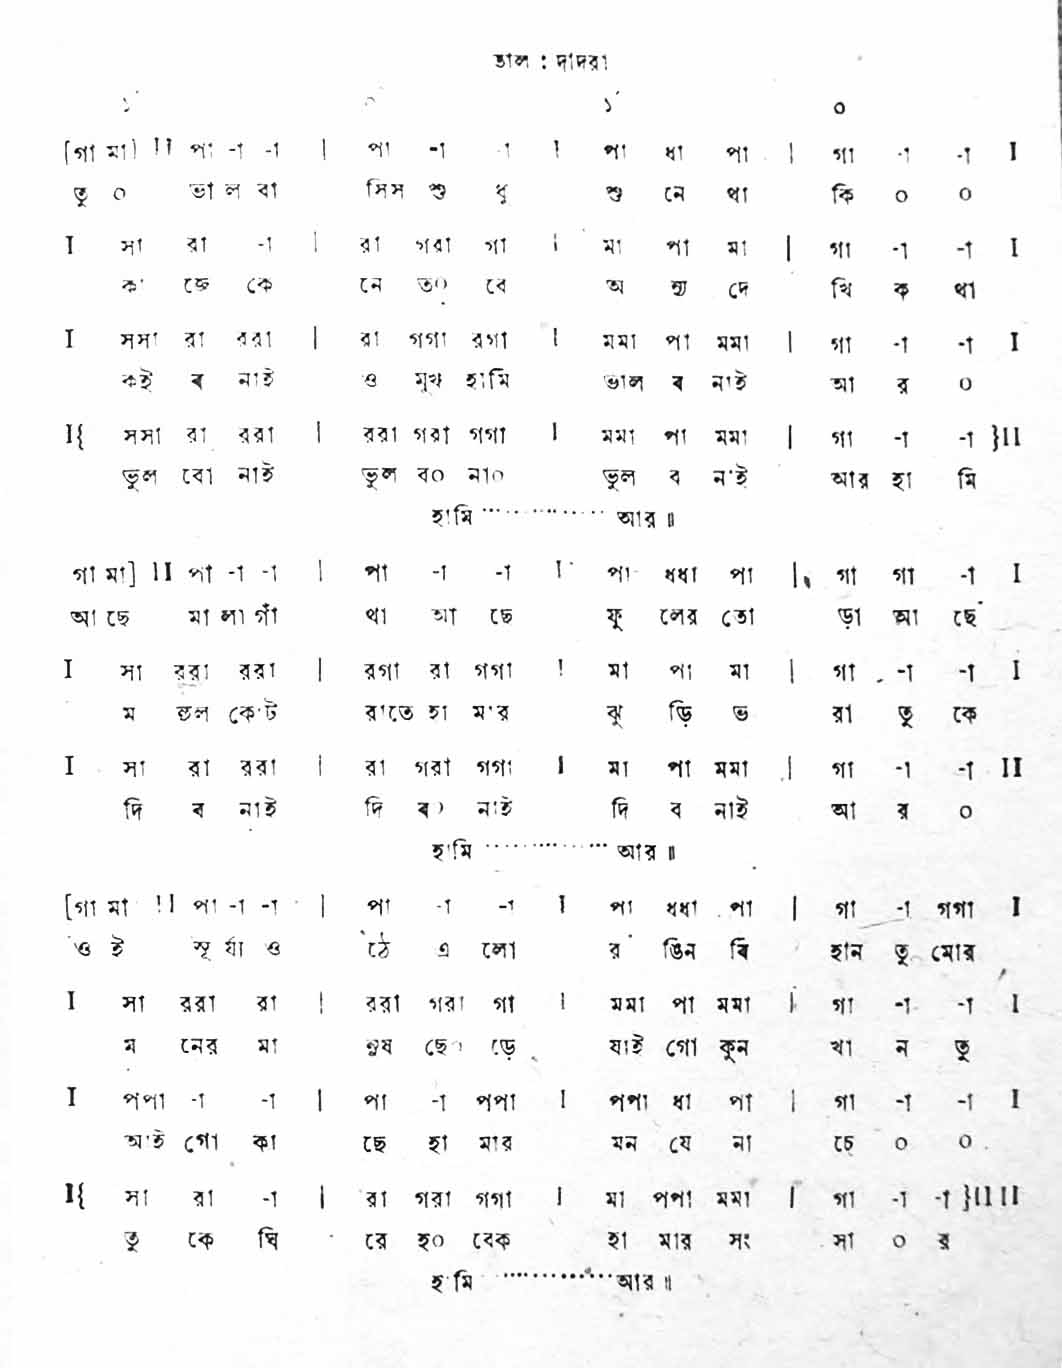 তাল : দাদরা
১´ ০ ১´ ০
[গা মা) II পা -া -া | পা -া -া I পা ধা পা | গা -া -া I
তু ০ ভা ল বা সিস শু ধু শু নে থা কি ০ ০
I সা রা -া | রা গরা গা I মা পা মা | গা -া -া I
কা ছে কে নে ত০ বে অ ন্য দে খি ক থা
I সসা রা ররা | রা গগা রগা I মমা পা মমা | গা -া -া I
কই ব নাই ও মুখ হামি ভাল ব নাই আ র ০
I{ সসা রা ররা | ররা গরা গগা I মমা পা মমা | গা -া -া }II
ভুল বো নাই ভুল ব০ না০ ভুল ব নাই আর হা মি
হামি ............... আর॥
গা মা] II পা -া -া | পা -া -া I পা ধধা পা | গা গা -া I
আ ছে মা লা গাঁ থা আ ছে ফু লের তো ড়া আ ছে
I সা ররা ররা | রগা রা গগা I মা পা মা | গা -া -া I
ম হুল কোট রাতে হা মার ঝু ড়ি ভ রা তু কে
I সা রা ররা | রা গরা গগা I মা পা মমা | গা -া -া II
দি ব নাই দি ব০ নাই দি ব নাই আ র ০
হামি ............... আর॥
[গা মা II পা -া -া | পা -া -া I পা ধধা পা | গা -া গগা I
ও ই সূ র্যা ও ঠে এ লো র ঙিন বি হান তু মোর
I সা ররা রা | ররা গরা গা I মমা পা মমা | গা -া -া I
ম নের মা নুষ ছে০ ড়ে যাই গো কুন খা ন তু
I পপা -া -া | পা -া পপা I পপা ধা পা | গা -া -া I
আই গো কা ছে হা মার মন যে না চে ০ ০
I{ সা রা -া | রা গরা গগা I মা পপা মমা | গা -া -া }II II
তু কে ঘি রে হ০ বেক হা মার সং সা ০ র
হামি ............... আর॥